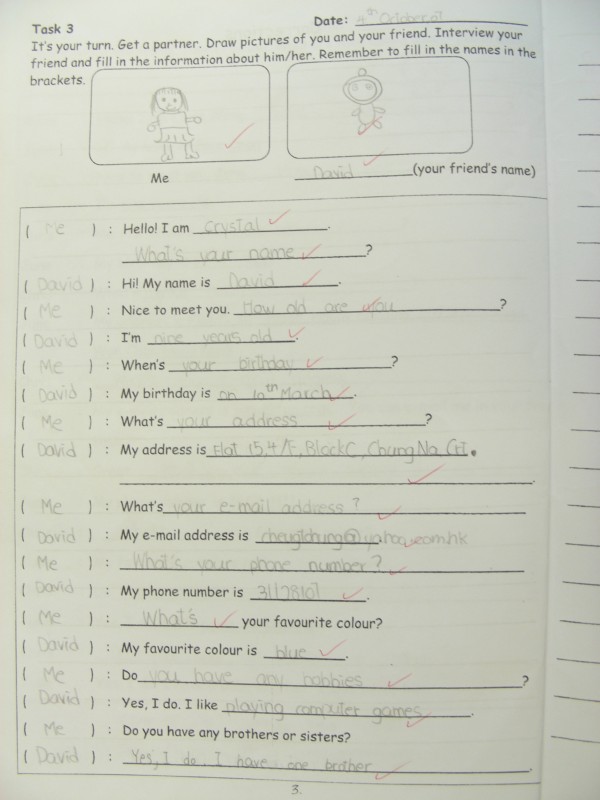 Task 3
Date: 4th October 07
It's your turn. Get a partner. Draw pictures of you and your friend. Interview your
friend and fill in the information about him/her. Remember to fill in the names in the
brackets.
Me
David (your friend's name)
( Me ) : Hello! I am Crystal.
What's your name?
( David ) : Hi! My name is David.
( Me ) : Nice to meet you. How old are you?
( David ) : I'm nine years old.
( Me ) : When's your birthday?
( David ) : My birthday is on 10th March.
( Me ) : What's your address?
( David ) : My address is Flat 15,4/F, Block C, Chung Na Crt.
( Me ) : What's your e-mail address?
( David ) : My e-mail address is @yahoo.com.hk
( Me ) : What's your phone number?
( David ) : My phone number is 31178107.
( Me ) : What's your favourite colour?
( David ) : My favourite colour is blue.
( Me ) : Do you have any hobbies?
( David ) : Yes, I do. I like playing computer games.
( Me ) : Do you have any brothers or sisters?
( David ) : Yes, I do. I have one brother.
3.